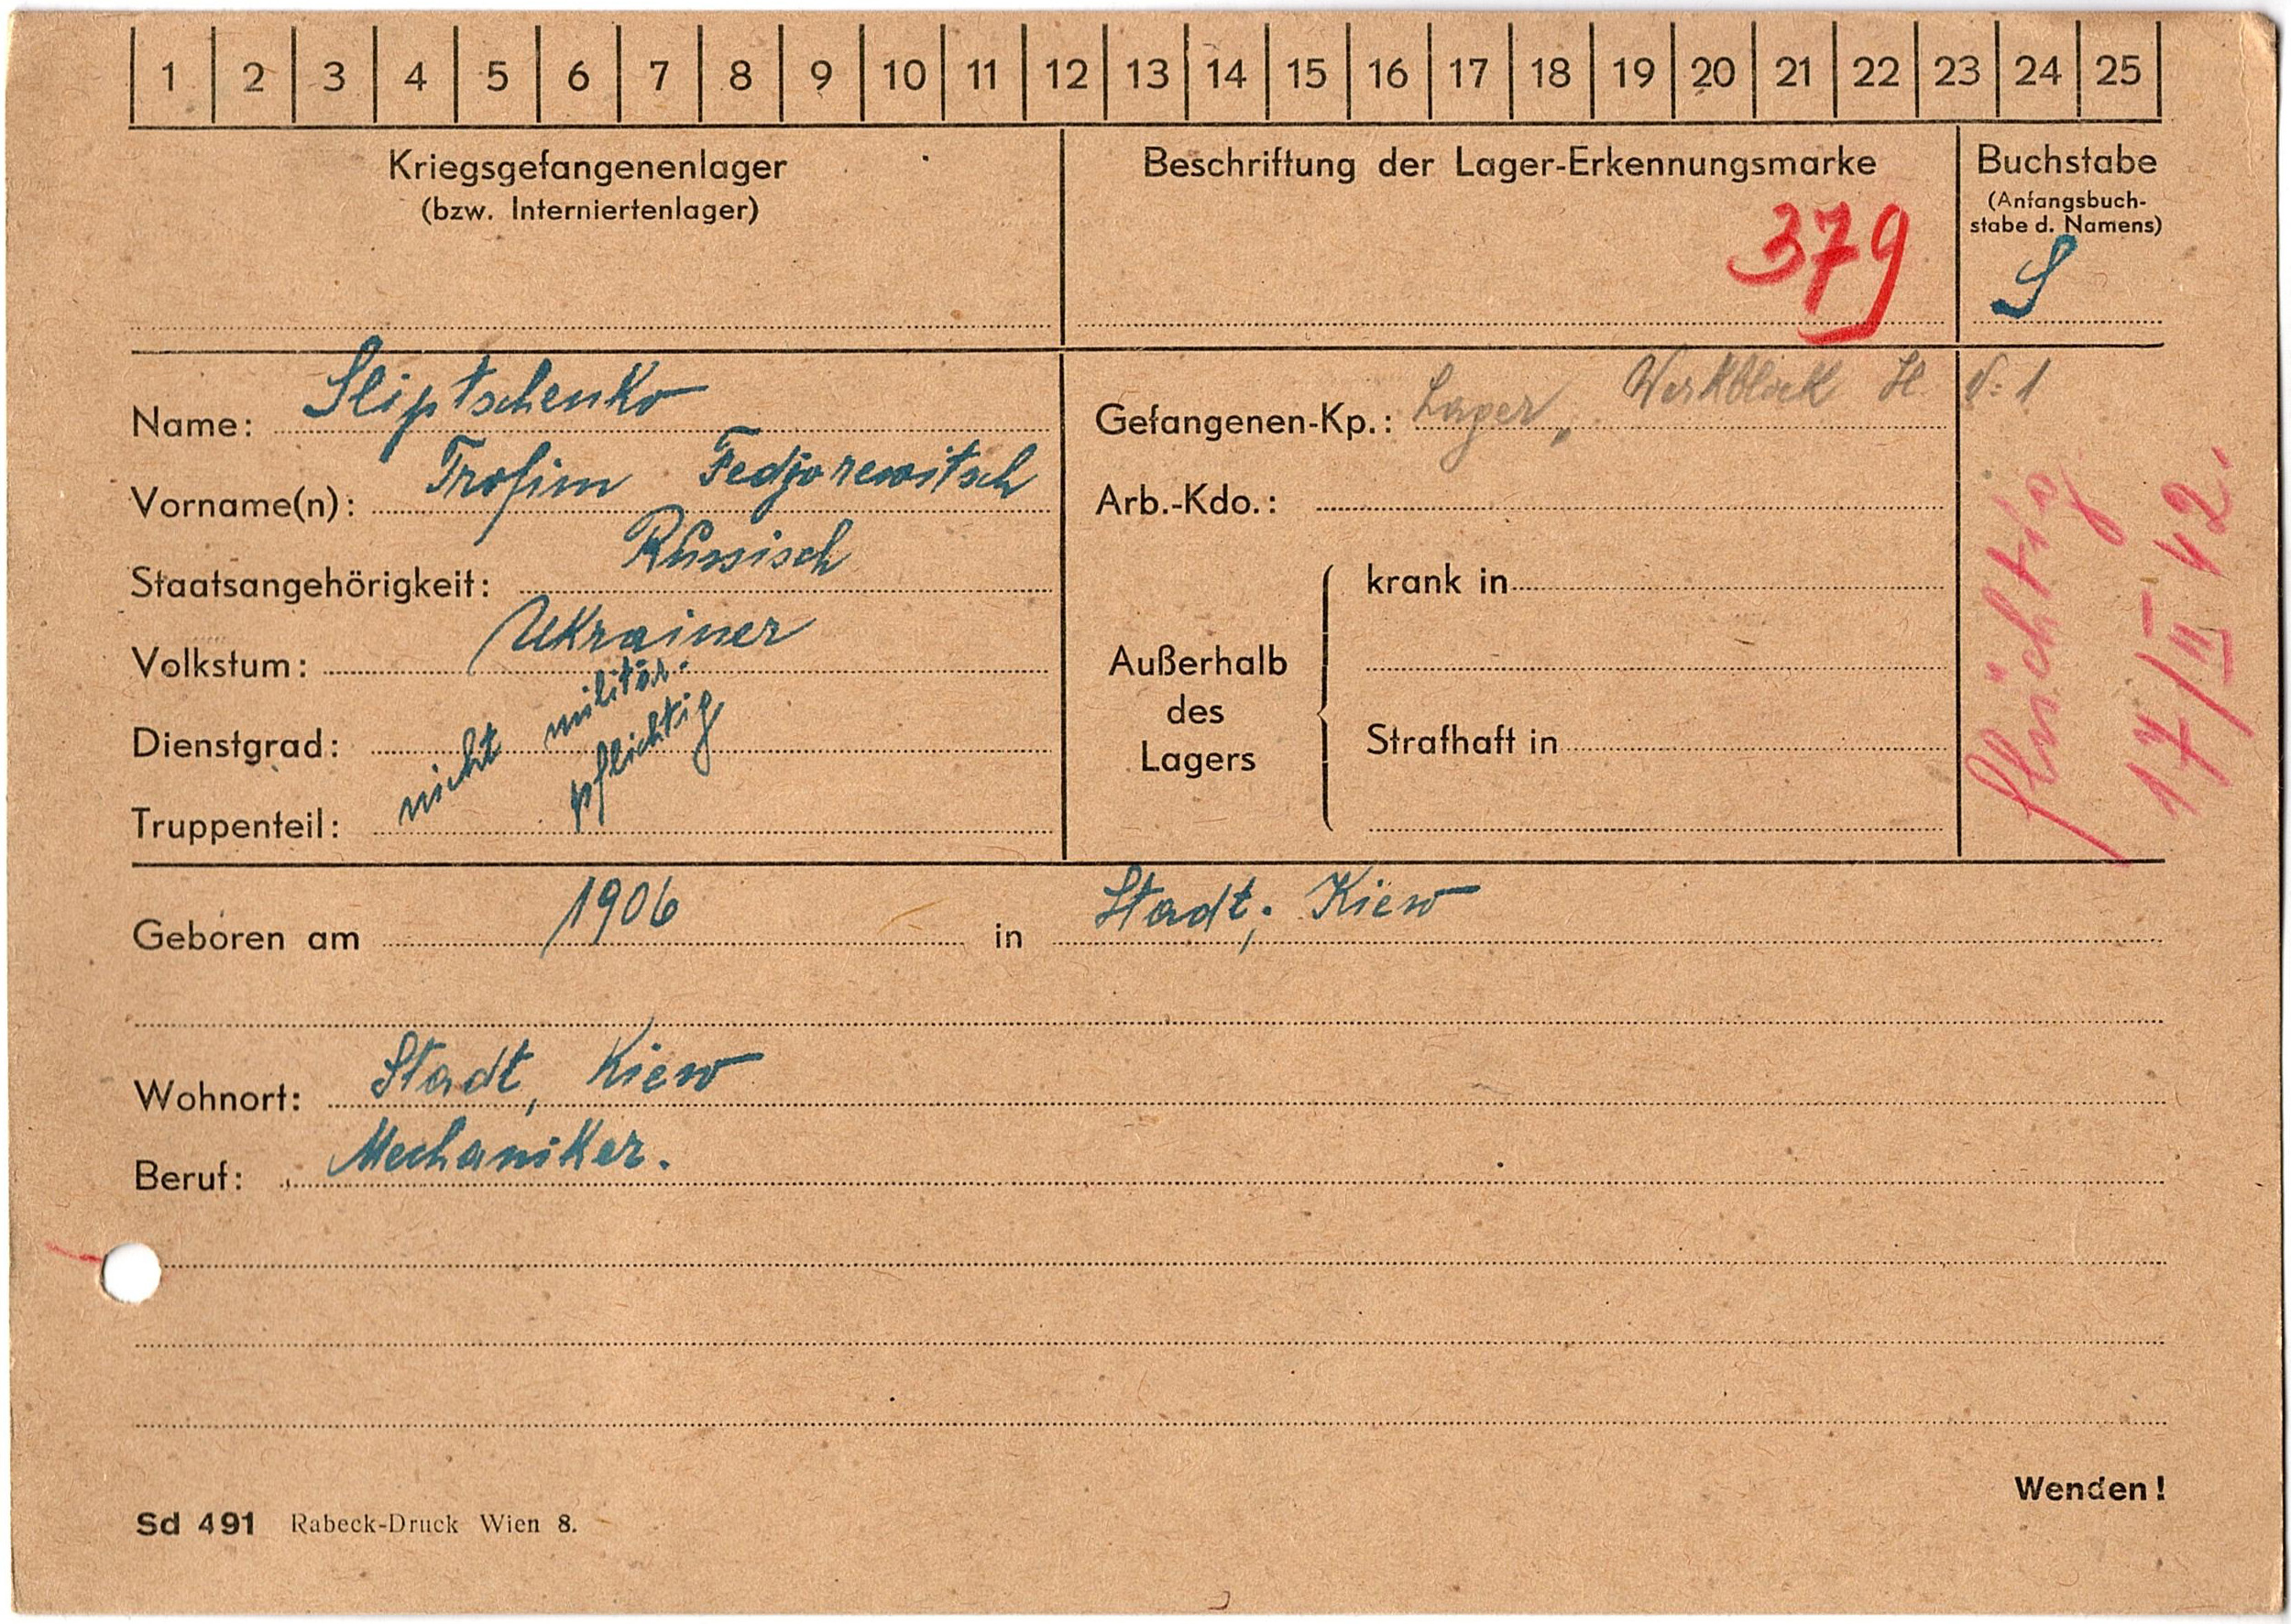 1 2 3 4 5 6 7 8 9 10 11 12 13 14 15 16 17 18 19 20 21 22 23 24 25
Kriegsgefangenenlager
(bzw. Interniertenlager)
Beschriftung der Lager-Erkennungsmarke
379
Buchstabe
(Anfangsbuch-
stabe d. Namens)
S
Name: Sliptschenko
Vorname(n): Trofim Fedjorewitsch
Staatsangehörigkeit: Russisch
Volkstum: Ukrainer
Dienstgrad: nicht militär.
Truppenteil: pflichtig
Gefangenen-Kp.: Lager, Werkblock H. N: 1
Arb.-Kdo.:
Außerhalb
des
Lagers
krank in
Strafhaft in
flüchtig
17/II 42.
Geboren am 1906 in Stadt, Kiew
Wohnort: Stadt, Kiew
Beruf: Mechaniker.
Wenden!
Sd 491 Rabeck-Druck Wien 8.